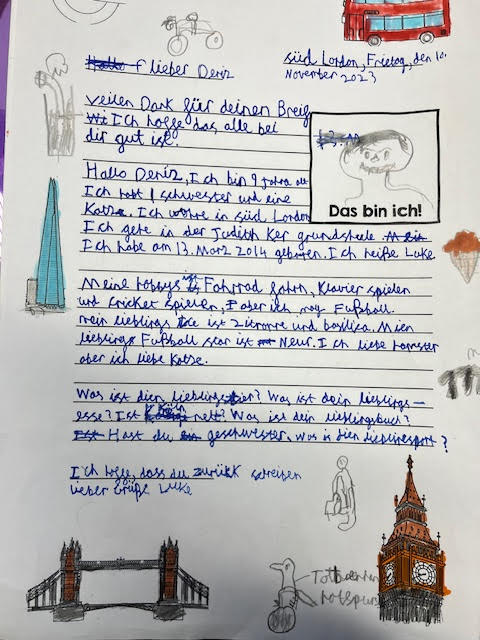 lieber Deniz
süd London, Frietag, den 10.
November 2023
veilen Dank für deinen Breif
Ich hoffe das alle bei
dir gut ist.
Hallo Deniz, Ich bin 9 Jahre alt
Ich habe 1 schwester und eine
Katze. Ich wohne in süd London
Ich gehe in der Judith Ker grundshule
Ich habe am 13. März 2014 geboren. Ich heiße Luke
Das bin ich!
Meine hobbys ist Fahrrad fahrn, Klavier spielen
und cricket spielen, aber ich mag Fußball.
mein lieblings ice ist Zitrone und basilica. Mien
lieblings Fußball star ist Neur. Ich liebe hamster
aber ich liebe Katze.
Was ist dien lieblingstier? Was ist dein lieblings-
esse? Ist nett? Was ist dein lieblingsbuch?
Hast du geschwester. Was is dien lieblinesport?
Ich hoffe, dass du zurück schreiben
lieber Grüße Luke
Tottenham
hotspurs